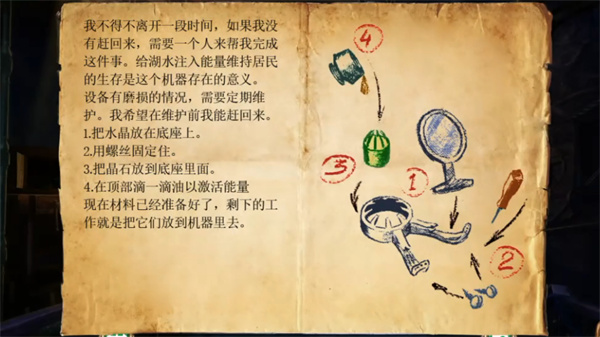 我不得不离开一段时间，如果我没
有赶回来，需要一个人来帮我完成
这件事。给湖水注入能量维持居民
的生存是这个机器存在的意义。
设备有磨损的情况，需要定期维
护。我希望在维护前我能赶回来。
1.把水晶放在底座上。
2.用螺丝固定住。
3.把晶石放到底座里面。
4.在顶部滴一滴油以激活能量
现在材料已经准备好了，剩下的工
作就是把它们放到机器里去。
4
3
1
2